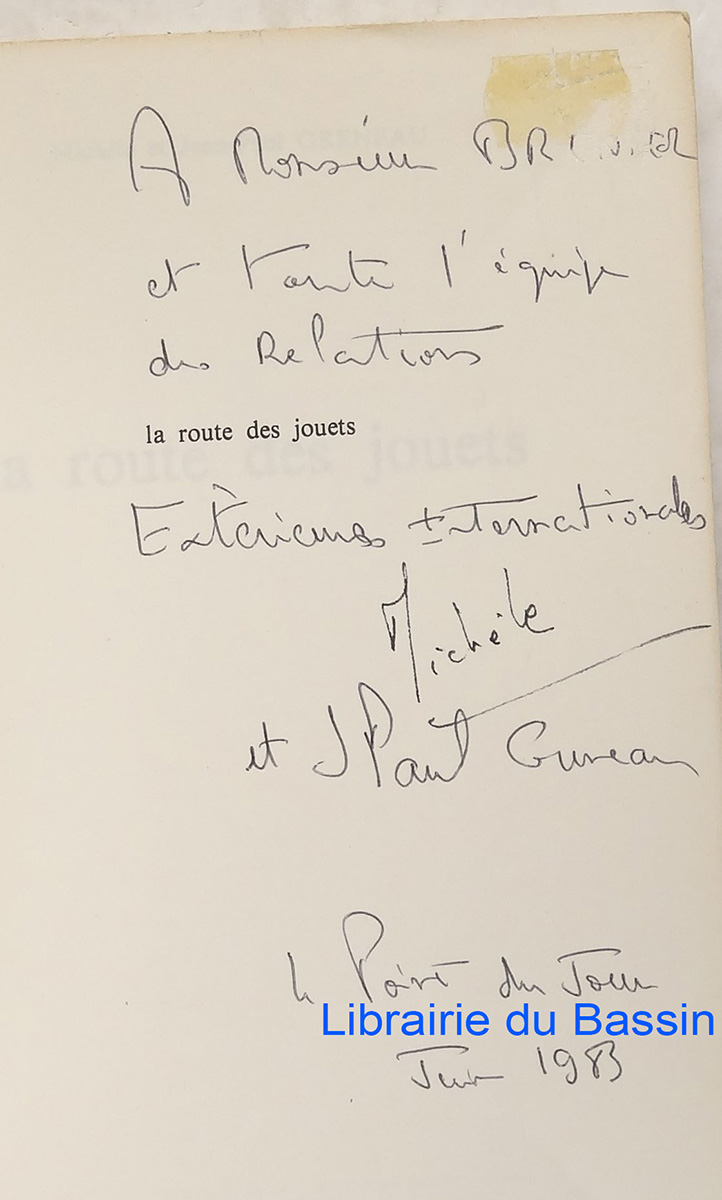 A Monsieur
et toute l'équipe
des Relations
la route des jouets
Extérieures Internationales
Michèle
et J Paul Greneau
le Point du Jour
Librairie du Bassin
Juin 1983